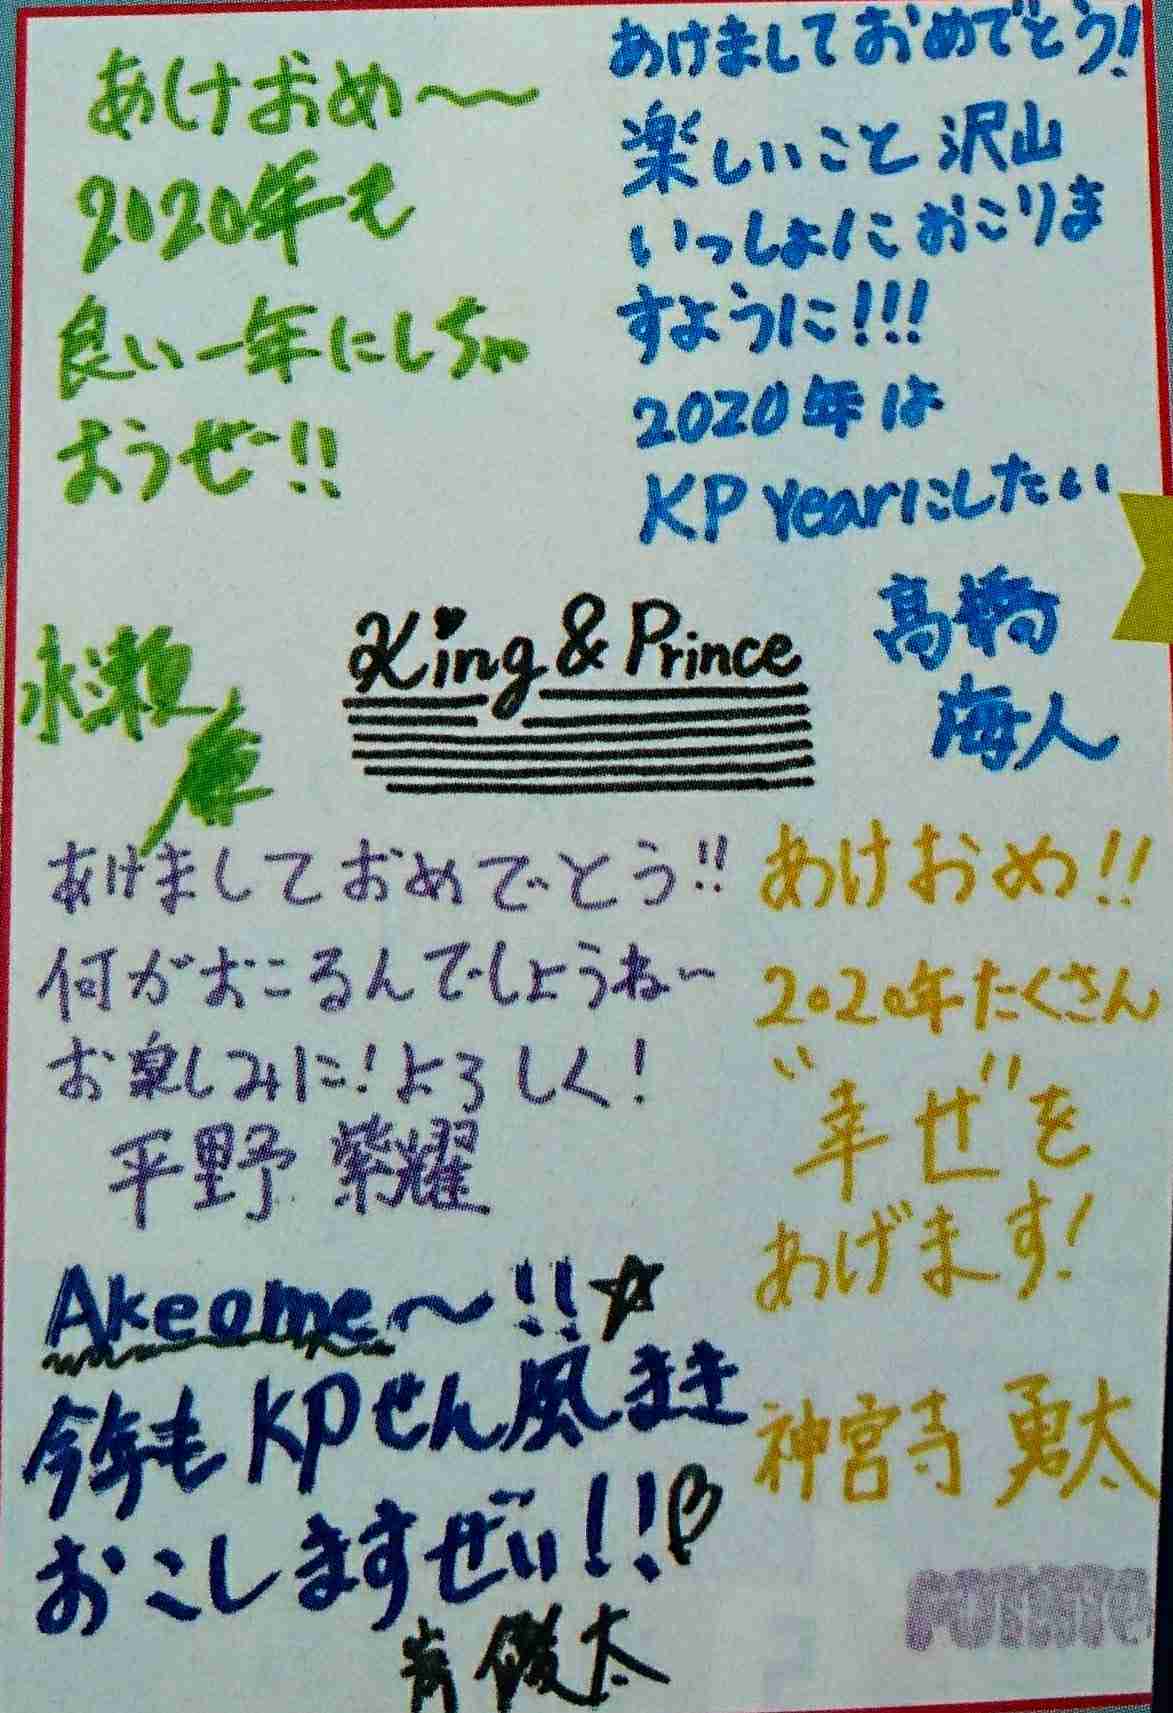 あけおめ〜
2020年も
良い一年にしちゃ
おうぜ!!
永瀬
廉
あけましておめでとう!
楽しいこと沢山
いっしょにおこりま
すように!!!
2020年は
KP Yearにしたい
高橋
海人
King & Prince
あけましておめでとう!!
何がおこるんでしょうね〜
お楽しみに!よろしく!
平野 紫耀
あけおめ!!
2020年たくさん
"幸せ"を
あげます!
神宮寺 勇太
Akeome〜!!☆
今年もKPせん風まき
おこしますぜぃ!!♡
岸 優太